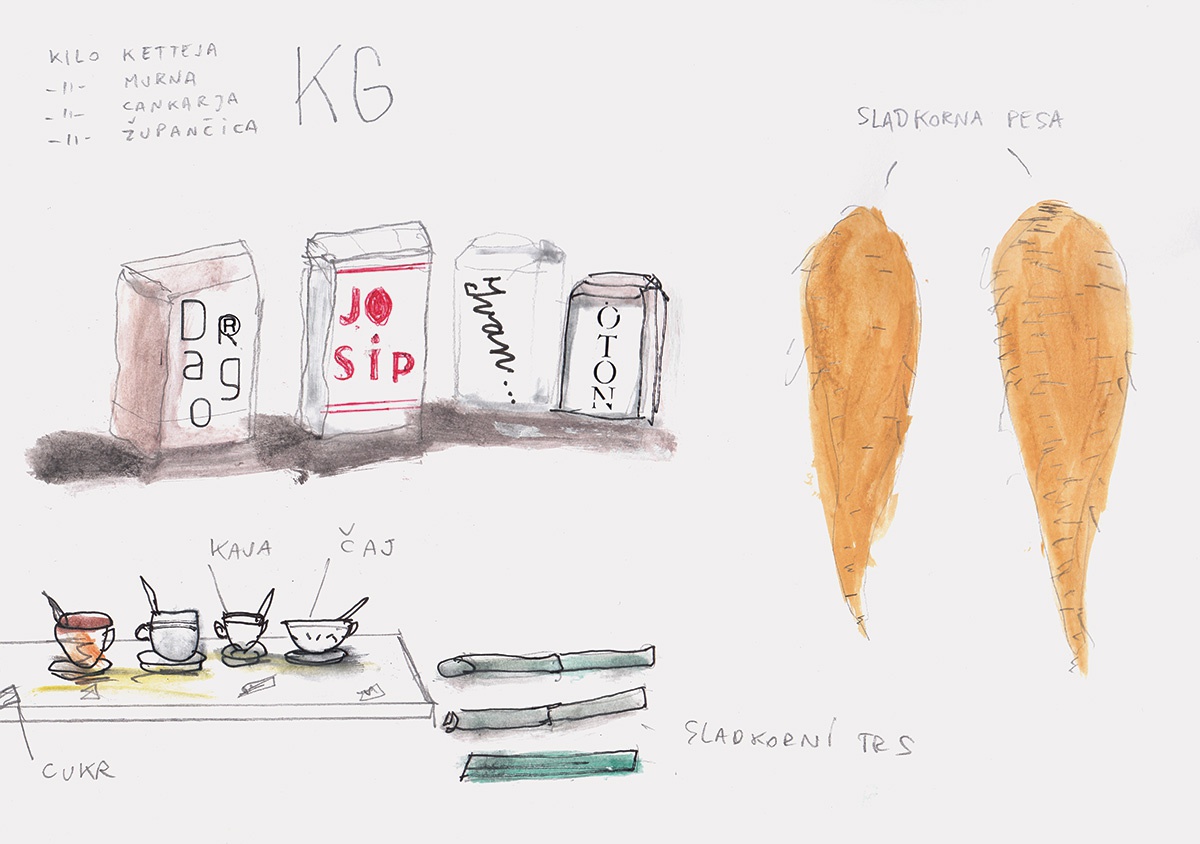 KILO KETTEJA
-||- MURNA
-||- CANKARJA
-||- ŽUPANČIČA
KG
SLADKORNA PESA
D R
a g
o
JO
SiP
Ivan...
OTON
KAVA
ČAJ
CUKR
SLADKORNI TRS